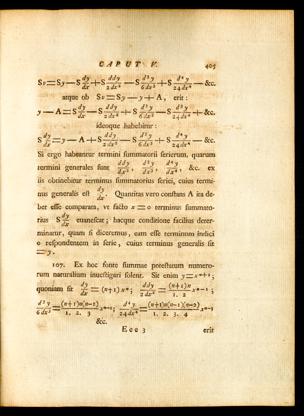 CAPUT V. 405
Sv=Sy−S dy/dx +S ddy/2dx² −S d³y/6dx³ +S d⁴y/24dx⁴ −&c.
atque ob Sv=Sy−y+A, erit:
y−A=S dy/dx −S ddy/2dx² +S d³y/6dx³ −S d⁴y/24dx⁴ +&c.
ideoque habebitur:
S dy/dx =y−A+S ddy/2dx² −S d³y/6dx³ +S d⁴y/24dx⁴ −&c.
Si ergo habeantur termini summatorii serierum, quarum
termini generales sunt ddy/dx², d³y/dx³, d⁴y/dx⁴, &c. ex
iis obtinebitur terminus summatorius seriei, cuius termi-
nus generalis est dy/dx. Quantitas vero constans A ita de-
ber esse comparata, vt facto x=0 terminus summato-
rius S dy/dx euanescat; hacque conditione facilius deter-
minatur, quam si diceremus, eam esse terminum indici
0 respondentem in serie, cuius terminus generalis sit
=y.
107. Ex hoc fonte summae potestatum numero-
rum naturalium inuestigari solent. Sit enim y=xⁿ⁺¹;
quoniam fit dy/dx =(n+1)xⁿ; ddy/2dx² = (n+1)n/1. 2 xⁿ⁻¹;
d³y/6dx³ = (n+1)n(n−1)/1. 2. 3 xⁿ⁻²; d⁴y/24dx⁴ = (n+1)n(n−1)(n−2)/1. 2. 3. 4 xⁿ⁻³
&c.
Eee 3 erit